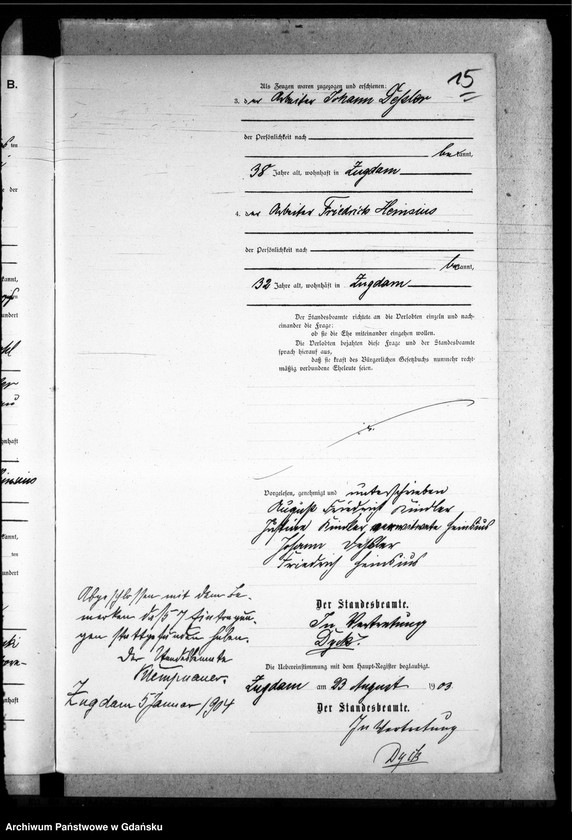 B.
15
Als Zeugen waren zugezogen und erschienen:
3. der Arbeiter Johann
der Persönlichkeit nach
bekannt,
38 Jahre alt, wohnhaft in Zugdam
4. der Arbeiter Friedrich Heinsius
der Persönlichkeit nach
bekannt,
32 Jahre alt, wohnhaft in Zugdam
Der Standesbeamte richtete an die Verlobten einzeln und nach-
einander die Frage:
ob sie die Ehe miteinander eingehen wollen.
Die Verlobten bejahten diese Frage und der Standesbeamte
sprach hierauf aus,
daß sie kraft des Bürgerlichen Gesetzbuchs nunmehr recht-
mäßig verbundene Eheleute seien.
Vorgelesen, genehmigt und unterschrieben
August Friedrich Kindler
Kindler Heinsius
Johann
Friedrich Heinsius
Abgeschlossen mit dem Be-
merken daß 7 Eintragun-
gen stattgefunden haben.
Der Standesbeamte
Zugdam 5 Januar 1904
Der Standesbeamte.
In Vertretung
Dyck.
Die Uebereinstimmung mit dem Haupt-Register beglaubigt.
Zugdam am 23 August 1903
Der Standesbeamte.
In Vertretung
Dyck
Archiwum Państwowe w Gdańsku